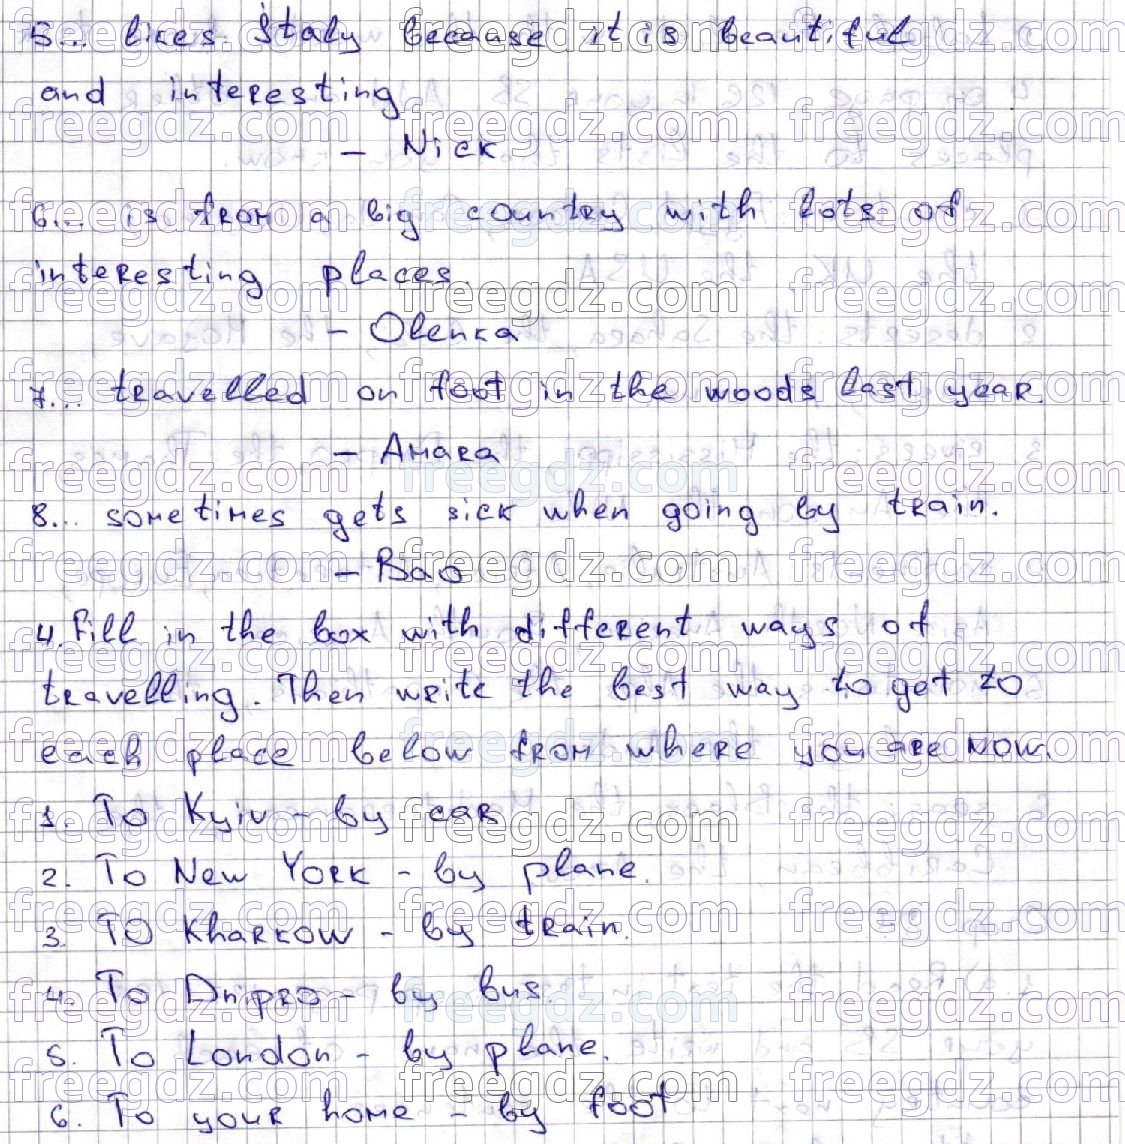 5... likes Italy because it is beautiful
and interesting
– Nick
6... is from a big country with lots of
interesting places.
– Olenka
7... travelled on foot in the woods last year.
– Amara
8... sometimes gets sick when going by train.
– Bao
4. Fill in the box with different ways of
travelling. Then write the best way to get to
each place below from where you are now.
1. To Kyiv – by car
2. To New York – by plane.
3. To Kharkow – by train.
4. To Dnipro – by bus.
5. To London – by plane.
6. To your home – by foot
freegdz.com